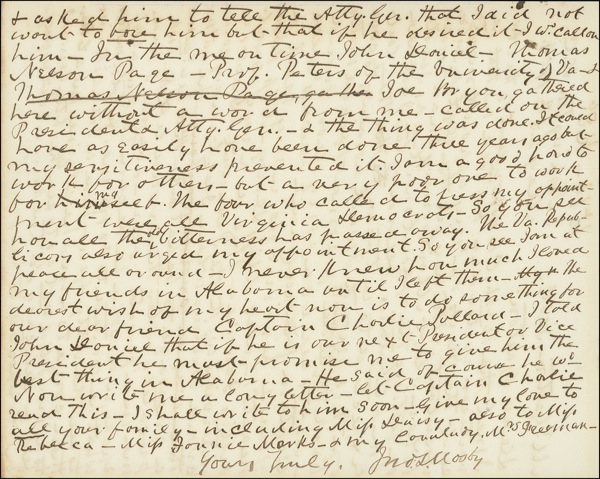 & asked him to tell the Atty. Gen. that I did not
want to bore him but that if he desired it I wd. call on
him – In the mean time John Daniel – Thomas
Nelson Page – Prof. Peters of the University of Va – &
Thomas Nelson Page, gather Joe Bryan, gathered
here without a word from me – called on the
President & Atty. Gen. – & the thing was done. It could
have as easily have been done three years ago but
my sensitiveness prevented it. I am a good hand to
work for others – but a very poor one to work
for himself. The four who called to press my appoint-
ment were all Virginia Democrats – So you see
how all the bitterness has passed away. The Va. Repub-
licans also urged my appointment. So you see I am at
peace all around – I never knew how much I loved
my friends in Alabama until I left them – the
dearest wish of my heart now is to do something for
our dear friend Captain Charlie Pollard – I told
John Daniel that if he is our next President or Vice
President he must promise me to give him the
best thing in Alabama – He said of course he wd
Now write me a long letter – let Captain Charlie
read this – I shall write to him soon – Give my love to
all your family – including Miss – also to Miss
Rebecca – Miss Fannie Marks – & my Mrs Freeman –
Yours Truly, Jno. S. Mosby